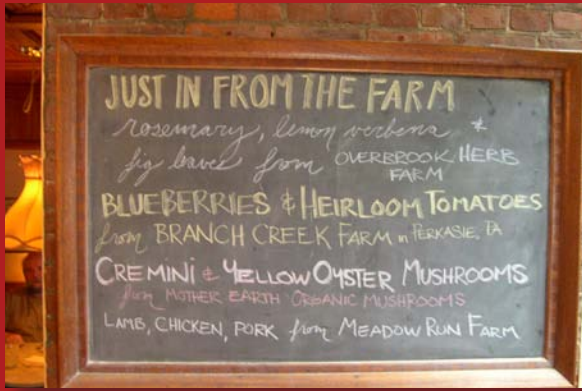 JUST IN FROM THE FARM
rosemary, lemon verbena &
fig leaves from OVERBROOK HERB
FARM
BLUEBERRIES & HEIRLOOM TOMATOES
from BRANCH CREEK FARM in PERKASIE, PA
CREMINI & YELLOW OYSTER MUSHROOMS
from MOTHER EARTH ORGANIC MUSHROOMS
LAMB, CHICKEN, PORK from MEADOW RUN FARM